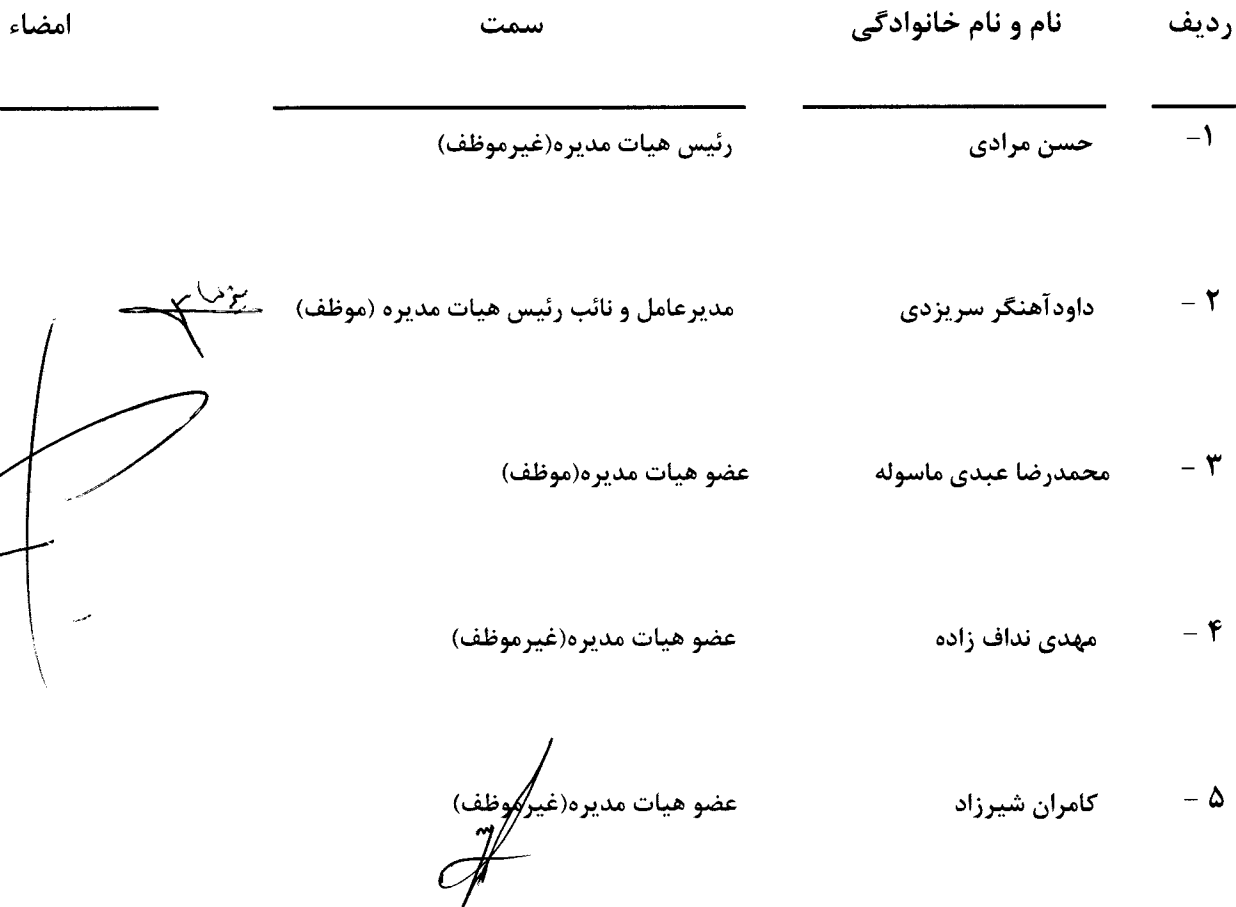 ردیف نام و نام خانوادگی سمت امضاء
۱- حسن مرادی رئیس هیات مدیره(غیرموظف)
۲ - داودآهنگر سریزدی مدیرعامل و نائب رئیس هیات مدیره (موظف)
۳ - محمدرضا عبدی ماسوله عضو هیات مدیره(موظف)
۴ - مهدی نداف زاده عضو هیات مدیره(غیرموظف)
۵ - کامران شیرزاد عضو هیات مدیره(غیرموظف)